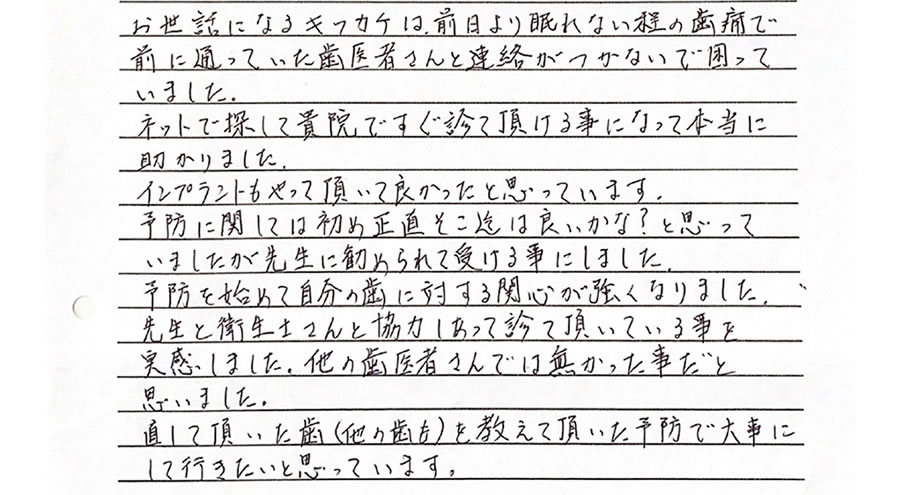 お世話になるキッカケは、前日より眠れない程の歯痛で
前に通っていた歯医者さんと連絡がつかないで困って
いました。
ネットで探して貴院ですぐ診て頂ける事になって本当に
助かりました。
インプラントもやって頂いて良かったと思っています。
予防に関しては初め正直そこ迄は良いかな?と思って
いましたが先生に勧められて受ける事にしました。
予防を始めて自分の歯に対する関心が強くなりました。
先生と衛生士さんと協力しあって診て頂いている事を
実感しました。他の歯医者さんでは無かった事だと
思いました。
直して頂いた歯(他の歯も)を教えて頂いた予防で大事に
して行きたいと思っています。